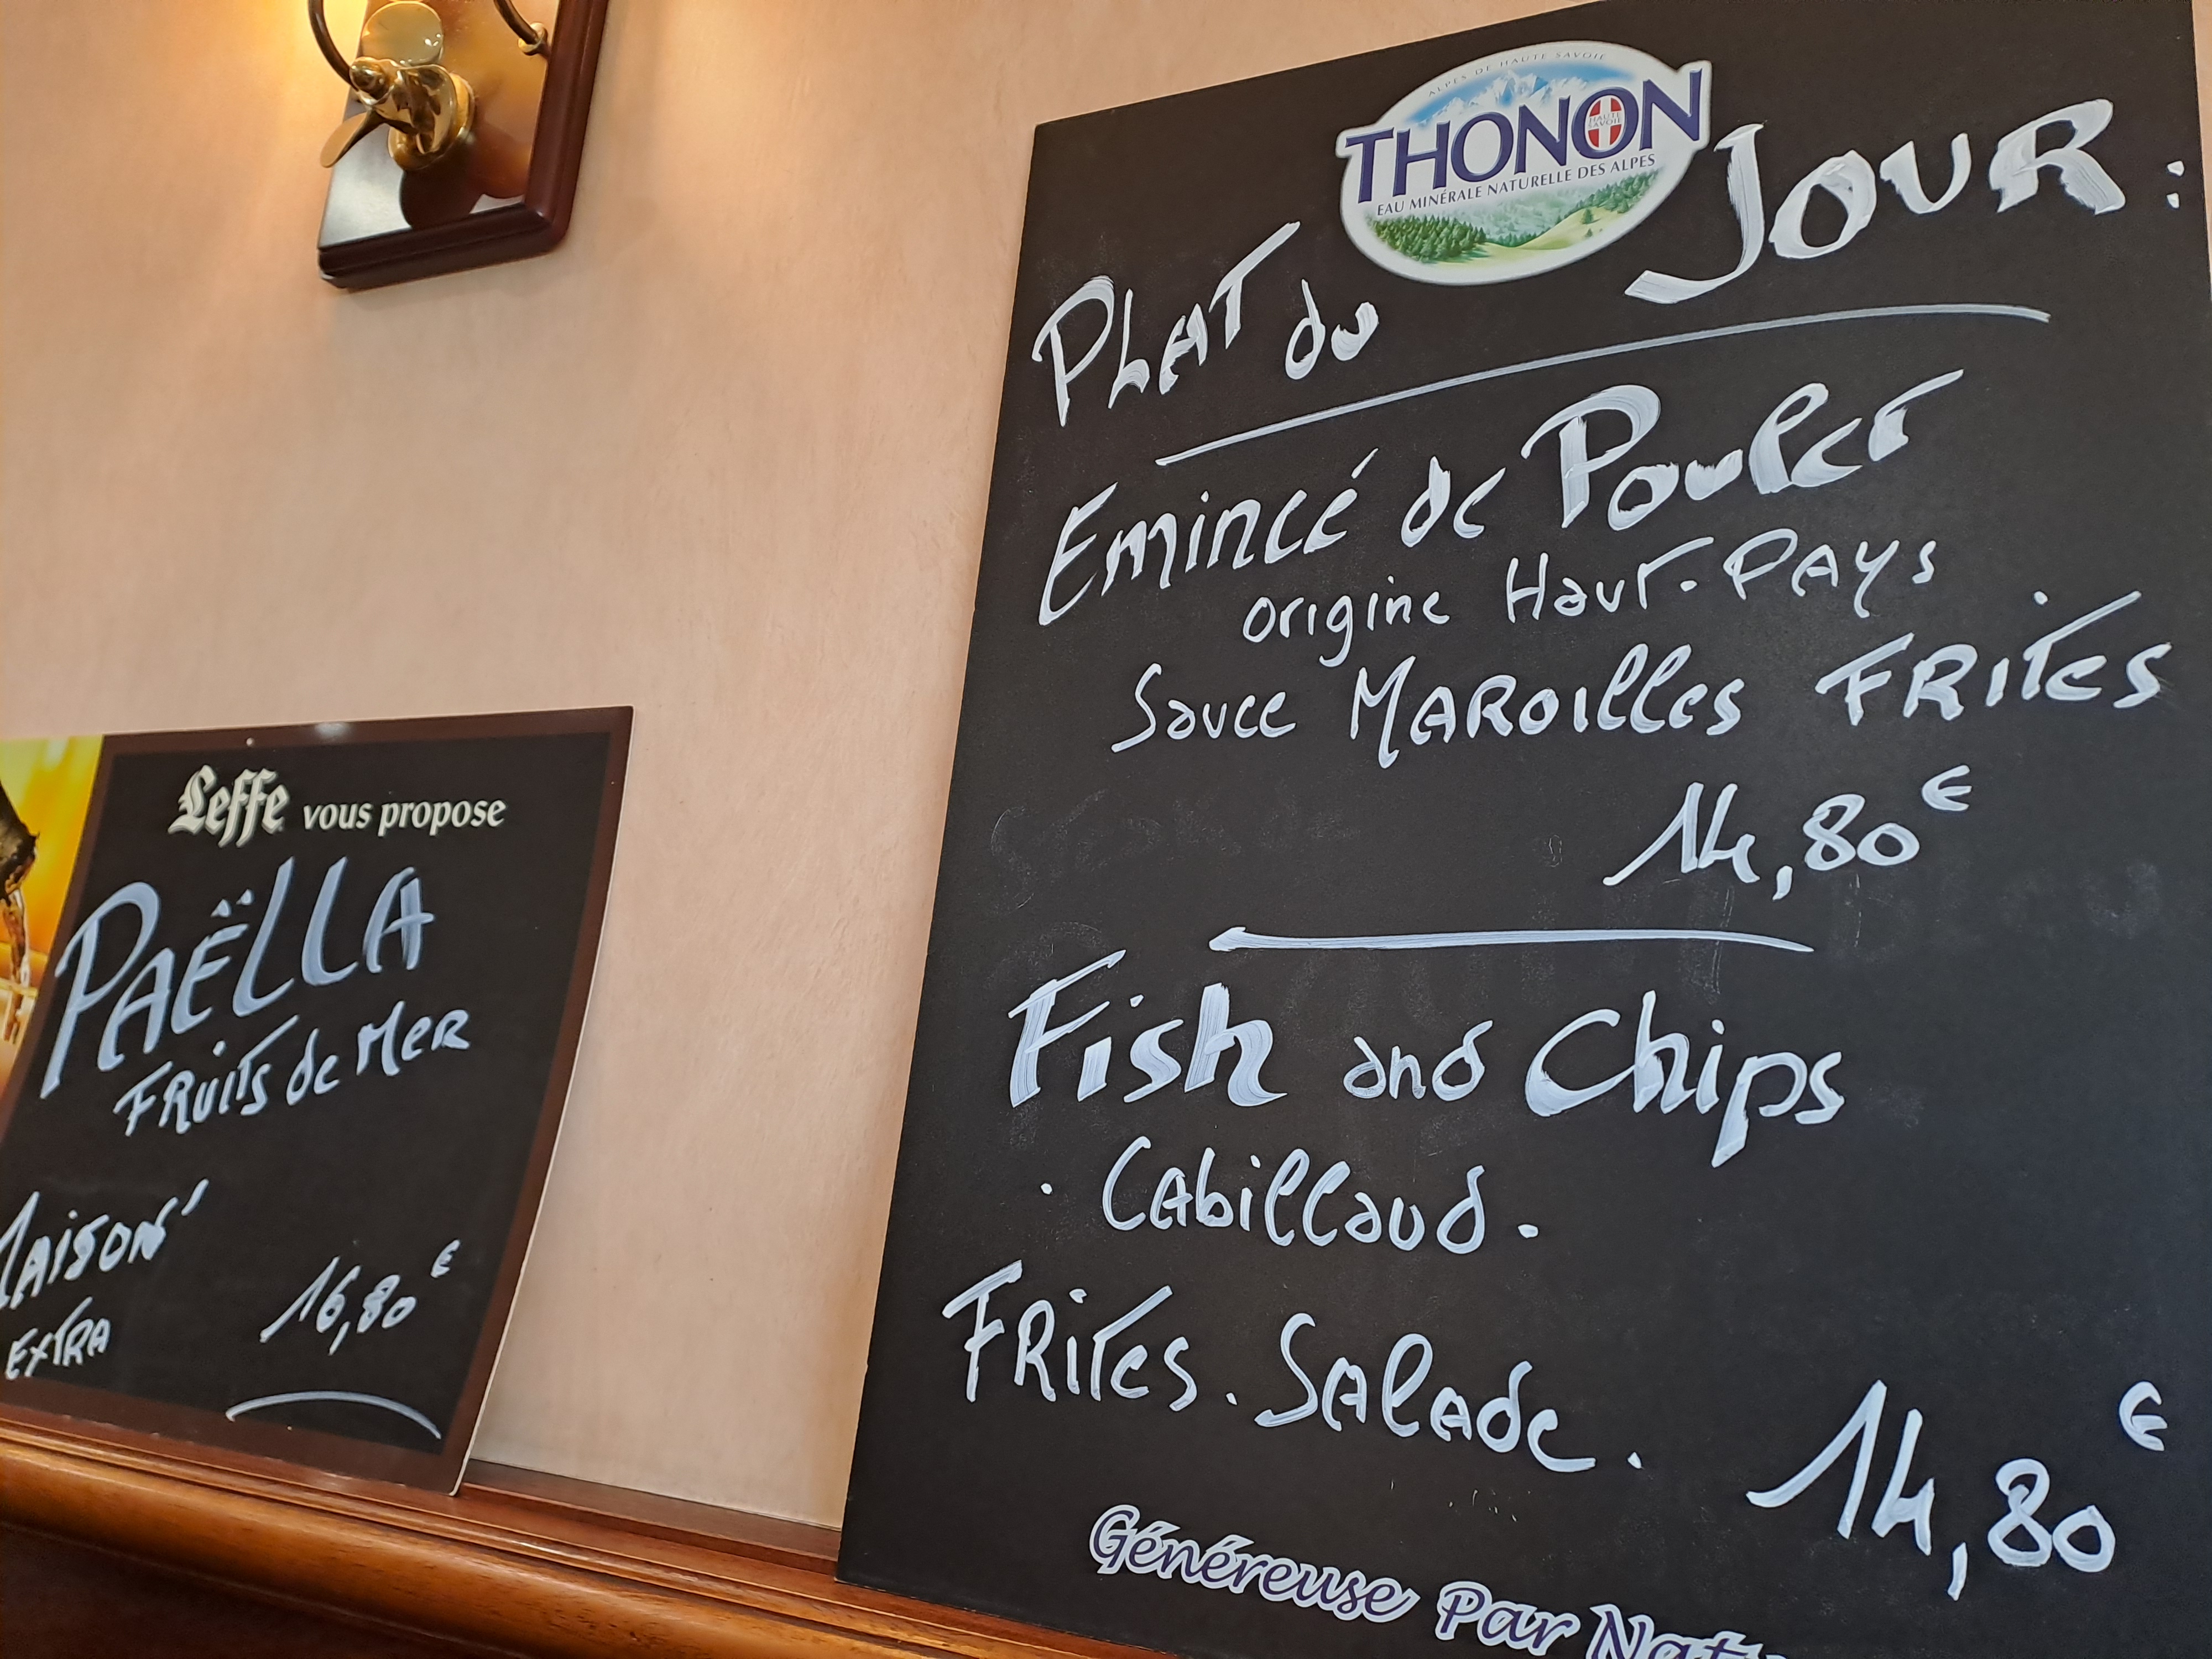 Leffe vous propose
PAËLLA
FRUITS de MER
MAISON
EXTRA
16,80€
ALPES DE HAUTE SAVOIE
THONON
HAUTE SAVOIE
EAU MINÉRALE NATURELLE DES ALPES
PLAT du JOUR :
Emincé de Poulet
origine Haut-Pays
Sauce MAROILLES FRITES
14,80€
Fish and Chips
. Cabillaud .
FRITES . SALADE .
14,80€
Généreuse Par